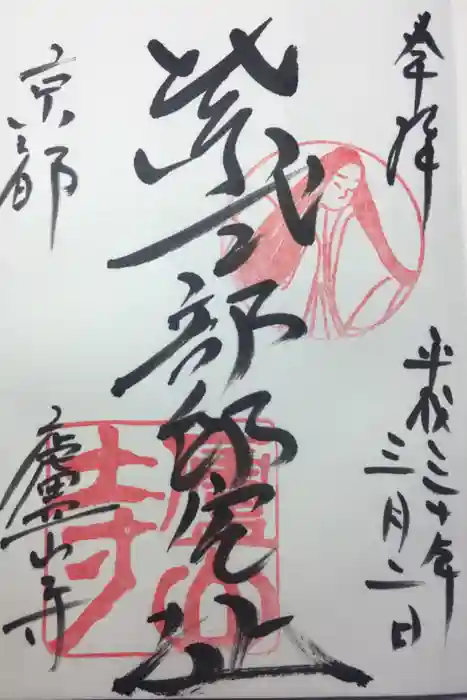 奉拝
平成三十年
三月二日
紫式部邸宅址
京都
廬山寺
廬山寺